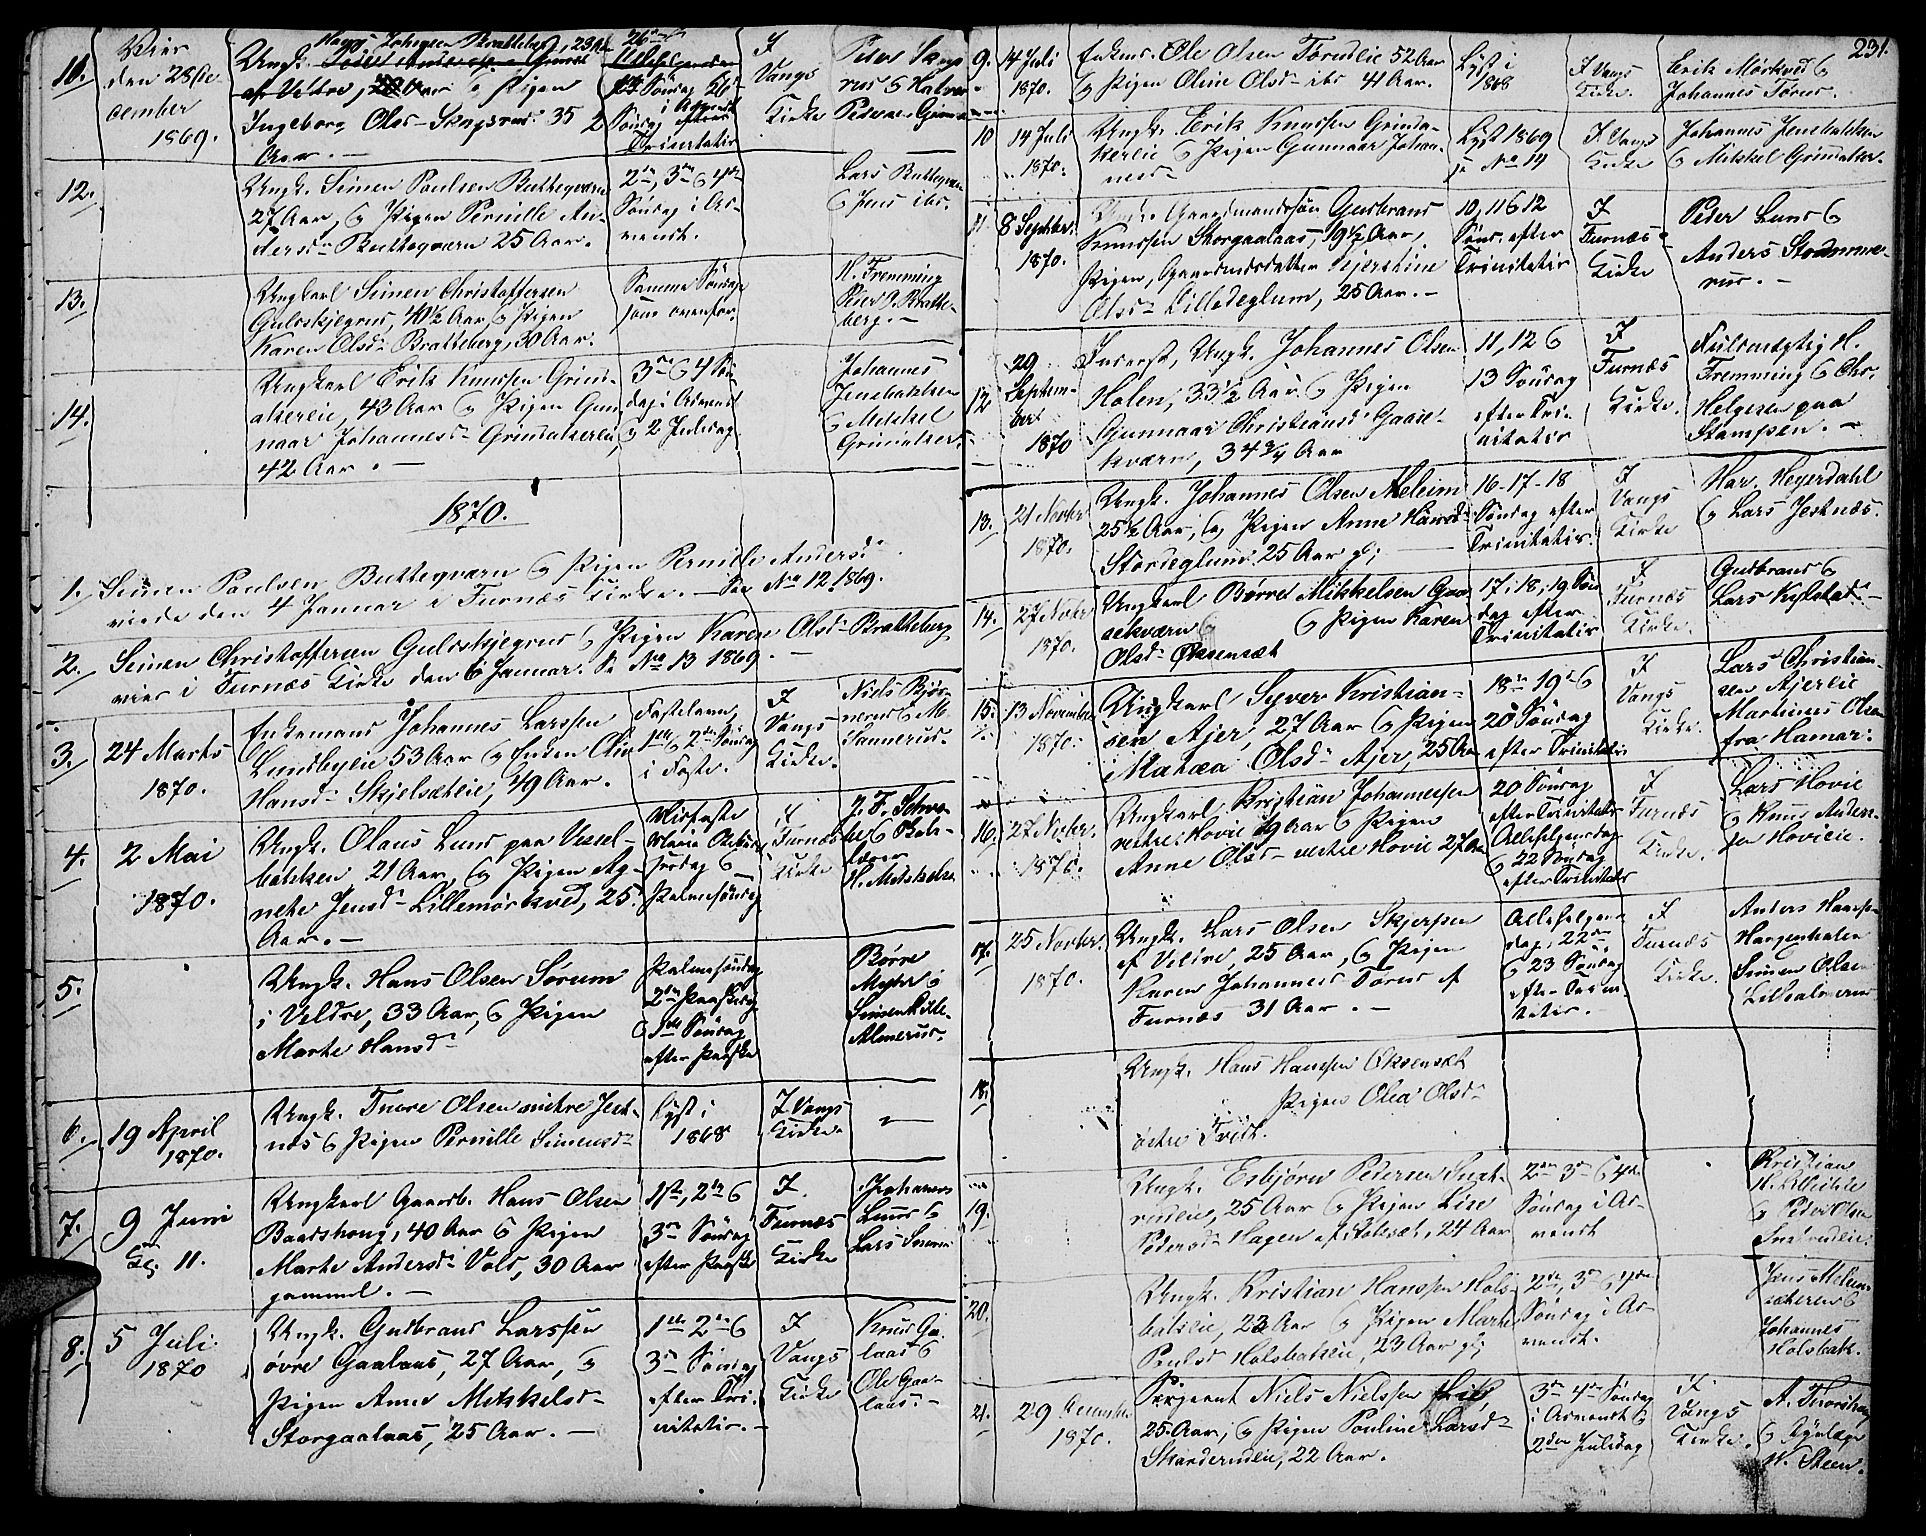 231.
11. Viet
den 28 De-
cember
1869.
Ungk.
af Veldre,
Ingeborg Olsd. 35
Aar. —
Søndag efter
Trinitatis
I
Vangs
Kirke
12.
Ungk. Simen Paulsen Butteqværn
27 Aar, og Pigen Pernille An-
dersdr Butteqværn 25 Aar.
2den, 3die og 4de
Søndag i Ad-
vendt.
Lars Butteqværn
og Jens ibd.
13.
Ungkarl Simen Christoffersen
Guldskjegrud, 40½ Aar og Pigen
Karen Olsdr Bratteberg, 30 Aar.
Samme Søndage
som ovenfor.
H. Fremming
Peder O. Bratte-
berg. —
14.
Ungkarl Erik Knudsen Grind-
akereie, 43 Aar og Pigen Gun-
naar Johannesdr Grindakereie,
42 Aar. —
3die og 4 Søn-
dag i Advendt
og 2 Juledag
Johannes
Jensbakken
og Mikkel
Grindaker.
1870.
1. Simen Paulsen Butteqværn og Pigen Pernille Andersdr
viede den 4 Januar i Furnæs Kirke. — See No 12, 1869.
2. Simen Christoffersen Guldskjegrud og Pigen Karen Olsdr Bratteberg
viet i Furnæs Kirke den 6 Januar. Se No 13 1869. —
3. 24 Marts
1870.
Enkemand Johannes Larssen
Lundbyeie 53 Aar og Enken Olia
Hansdr Skjelsæteie, 49 Aar.
Fastelavn,
1ste og 2den Søndag
i Faste.
I
Vangs
Kirke.
Niels Bjør-
nerud og M.
Sannerud.
4. 2 Mai
1870.
Ungk. Olaus Lund paa Vessel-
bakken 21 Aar, og Pigen Ag-
nete Jensdr Lillemørkved, 25
Aar. —
Midfaste
Maria Bebud.
og
Palmesøndag
I
Furnæs
Kirke
H. Mikkelsen
5.
Ungk. Hans Olsen Sørum
i Veldre, 33 Aar, og Pigen
Marte Hansdr
Palmesøndag
2den Paaskedag
og 1ste Søndag
efter Paaske
Børre
og
Simen Lille-
Almerud.
6. 19 April
1870.
Ungk. Tvore Olsen nedre Jest-
næs og Pigen Pernille Simensdr
Lyst i
1868
I Vangs
Kirke.
7. 9 Juni
Kl. 11.
Ungkarl Gaardb. Hans Olsen
Baadshoug, 40 Aar og Pigen
Marte Andersdr Vold, 30 Aar
gammel. —
1ste, 2den og
3die Søndag
efter Paaske
I
Furnæs
Kirke
Johannes
Lund og
Lars
8. 5 Juli
1870
Ungk. Gudbrand Larssen
øvre Gaalaas, 27 Aar, og
Pigen Anne Mikkelsdr
Storgaalaas, 25 Aar. —
1ste 2den og
3die Søndag
efter Tri-
nitatis. —
I
Vangs
Kirke
Knud Ga-
laas og
Ole Gaa-
laas. —
9. 14 Juli
1870.
Enkem. Ole Olsen Torudeie 52 Aar
og Pigen Oline Olsdr ibd 41 Aar.
Lyst i
1868
I Vangs
Kirke.
Erik Mørkved og
Johannes Torud.
10 14 Juli
1870.
Ungk. Erik Knudsen Grinda-
kereie og Pigen Gunnaar Johan-
nesdr
Lyst 1869
se No 14
I Vangs
Kirke
Johannes Jensbakken
og Mikkel Grindaker.
11 8 Septbr.
1870.
Ungk. Gaardmandssøn Gudbrand
Knudsen Storgaalaas, 19½ Aar,
Pigen, Gaardmdsdatter Kjerstine
Olsdr Lilledeglum, 25 Aar. —
10, 11 og 12
Sønd. efter
Trinitatis
I
Furnæs
Kirke
Peder Lund og
Anders Stramme-
rud. —
12 29
Septem-
ber
1870
Inderst, Ungk. Johannes Olsen
Holen, 33½ Aar og Pigen
Gunnaar Christiansdr Gaase-
kværn, 34¾ Aar
11, 12 og
13 Søndag
efter Tri-
nitatis
I
Furnæs
Kirke.
Fuldmægtig H.
Fremming og Chr.
Helgesen paa
Stampen. —
13. 21 Novbr.
1870.
Ungk. Johannes Olsen Meleim
25½ Aar, og Pigen Anne Hansdr
Stordeglum 25 Aar gl;
16-17-18
Søndag efter
Trinitatis.
I
Vangs
Kirke
Har. Heyerdahl
og Lars Jestnæs.
14. 27 Novbr
1870.
Ungkarl Børre Mikkelsen Gaa-
sekværn og Pigen Karen
Olsdr Oksensæt
17, 18, 19 Søn
dag efter
Trinitatis
I
Furnæs
Kirke.
Gudbrand og
Lars Kylstad —
15. 13 November
1870.
Ungkarl Syver Kristian-
sen Ajer, 27 Aar og Pigen
Matea Olsdr Ajer, 25 Aar
18de 19de og
20 Søndag
efter Trinitatis
I
Vangs
Kirke.
Lars Christian-
sen Ajereie
Martinus Olsen
fra Hamar.
16. 27 Novbr.
1870.
Ungkarl Kristian Johannessen
vestre Hovie 29 Aar og Pigen
Anne Olsdr vestre Hovie 27 Aar
20 Søndag
efter Trinitatis
Allehelgensdag
og 22 Søndag
efter Trinitatis
I
Furnæs
Kirke.
Lars Hovie
og Knud Ander-
sen Hovieie.
17. 25 Novbr.
1870.
Ungk. Lars Olsen Skjerpen
af Veldre, 25 Aar, og Pigen
Karen Johannesd Torud af
Furnæs 31 Aar. —
Allehelgens-
dag, 22den
og 23 Søndag
efter Trini-
tatis. —
I
Furnæs
Kirke.
Anders Hansen
Haugenhalen
Simen Olsen
Lillealmerud
18.
Ungk. Hans Hanssen Oksensæt
Pigen Olea Olsdr
østre Tvedt.
19.
Ungk. Esbjørn Pedersen Snat-
rudeie, 25 Aar og Pigen Lise
Pedersdr Hagen af Stokset, 24 Aar
2den 3die og 4de
Søndag i Ad-
vendt
Kristian
og Peder Olsen
Snatrudeie.
20.
Ungk. Kristian Hanssen Hols-
bakeie, 22 Aar og Pigen Marte
Paulsd Holsbakeie, 23 Aar gl;
2den, 3die og 4de
Søndag i Ad-
vendt.
Jens Melum-
sæteren og
Johannes
Holsbak.
21. 29 December
1870.
Sergeant Niels Nielssen
25 Aar, og Pigen Pauline Larsdr
Skanderudeie, 22 Aar.
3die 4de Søndag
i Advendt og
2den Juledag
I
Vangs
Kirke.
A. Thorshoug
og Dyrlæge
N. Steen.